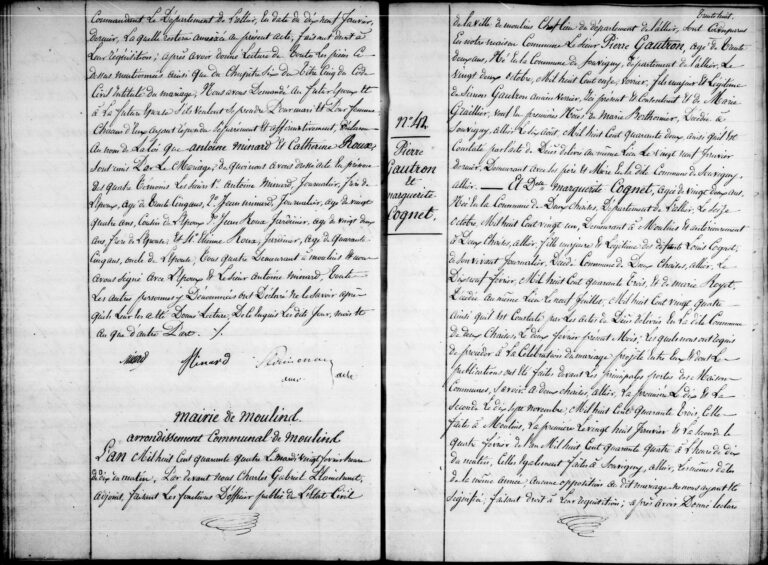 Commandant le Département de l'allier, en date du dix neuf Janvier,
dernier, laquelle restera annexée au présent acte, faisant droit à
leur réquisition; après avoir donné Lecture de toutes les pièces ci
dessus mentionnées ainsi que du Chapitre Six du titre Cinq du Code
Civil intitulé du mariage, Nous avons Demandé au futur époux et
à la future épouse s'ils veulent se prendre pour mari et pour femme
Chacun d'eux ayant répondu séparément et affirmativement, déclarons
au nom de la loi que antoine minard et Catherine Roux,
sont unis par le Mariage; de quoi nous avons dressé acte en présence
des quatre témoins les Sieurs Antoine Minard, Journalier, frère de
l'époux, agé de trente Cinq ans, Jean minard, journalier, agé de vingt
quatre ans, Cousin de l'époux, Jean Roux jardinier, agé de vingt deux
ans frère de l'épouse, et Etienne Roux, jardinier, agé de quarante
Cinq ans, oncle de l'épouse, tous quatre demeurant à moulins et nous
avons signé avec l'époux et le Sieur Antoine minard, toutes
les autres personnes y Dénommées ont Déclaré ne le savoir après
que Lecture leur a été Donnée, les dits jour, mois et
an que d'autre part.
Minard
mairie de moulins
arrondissement Communal de moulins
L'an Mil huit Cent quarante quatre Le mardi vingt février heure
de dix du matin, Par devant nous Charles Gabriel
adjoint, faisant les fonctions d'officier public de l'état Civil
trente huit.
de la ville de moulins Chef lieu du département de l'allier, sont Comparus
en notre maison Commune le Sieur Pierre Gautron, agé de trente
deux ans, Né en la Commune de Souvigny, département de l'allier, le
vingt deux octobre, Mil huit Cent onze, fils majeur et Légitime
de Simon Gautron ancien, ici présent et Consentant et de Marie
veuf en premières Noces de Marie Berthomier, décédée à
Souvigny, allier, le Août Mil huit Cent quarante deux ainsi qu'il est
Constaté par l'acte de Décès délivré au même lieu le vingt neuf Janvier
dernier, Demeurant avec ses père et Mère en la dite Commune de Souvigny
allier. — Et Dlle marguerite Cognet, agée de vingt deux ans,
Née en la Commune de Deux Chaises, Département de l'allier, le Seize
octobre, Mil huit Cent vingt un, Demeurant à Moulins et antérieurement
à Deux Chaises, allier, fille majeure et Légitime des défunts Louis Cognet,
de Son vivant Journalier, Décédé Commune de Deux Chaises, allier, le
Dix neuf février, Mil huit Cent quarante trois, et de marie Royet,
Décédée au même lieu le neuf juillet, Mil huit Cent vingt quatre
ainsi qu'il est Constaté par les actes de Décès délivrés en la dite Commune
de deux Chaises, le deux février présent Mois; les quels nous ont requis
de procéder à la Célébration du mariage projeté entre eux et dont les
publications ont été faites devant les principales portes des Maisons
Communes, Savoir: à deux chaises, allier, la première le dix et la
Seconde le dix sept novembre, Mil huit Cent quarante trois, Celle
faite à Moulins, la première le vingt huit Janvier et la Seconde le
quatre février de l'an Mil huit Cent quarante quatre à l'heure de dix
du matin, Celles également faites à Souvigny, allier, les mêmes dates
de la même année; aucune opposition au dit mariage ne nous ayant été
Signifiée, faisant droit à leur réquisition; après avoir Donné lecture
n°. 42
Pierre
Gautron
et
marguerite
Cognet.